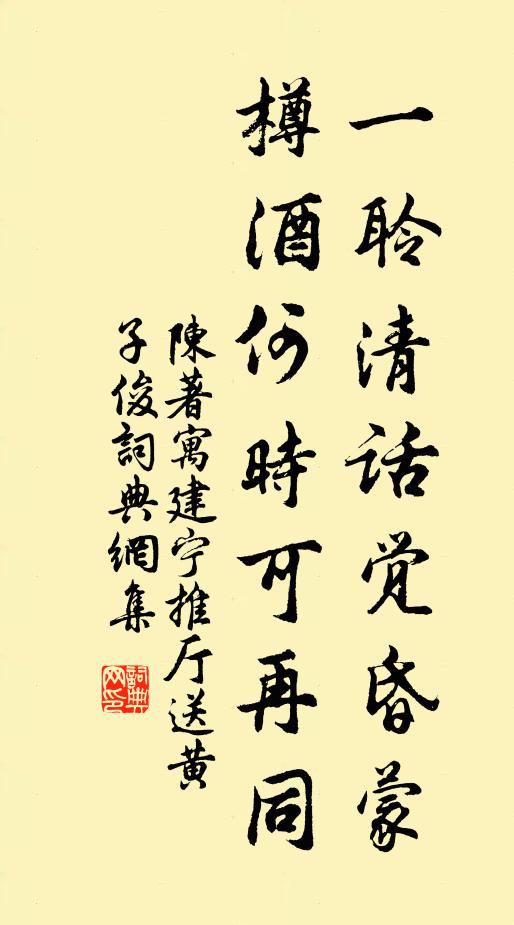 一聆清话觉昏蒙
樽酒何時可再同
陳著寓建宁推厅送黄
子俊詞典網集
詞典網印